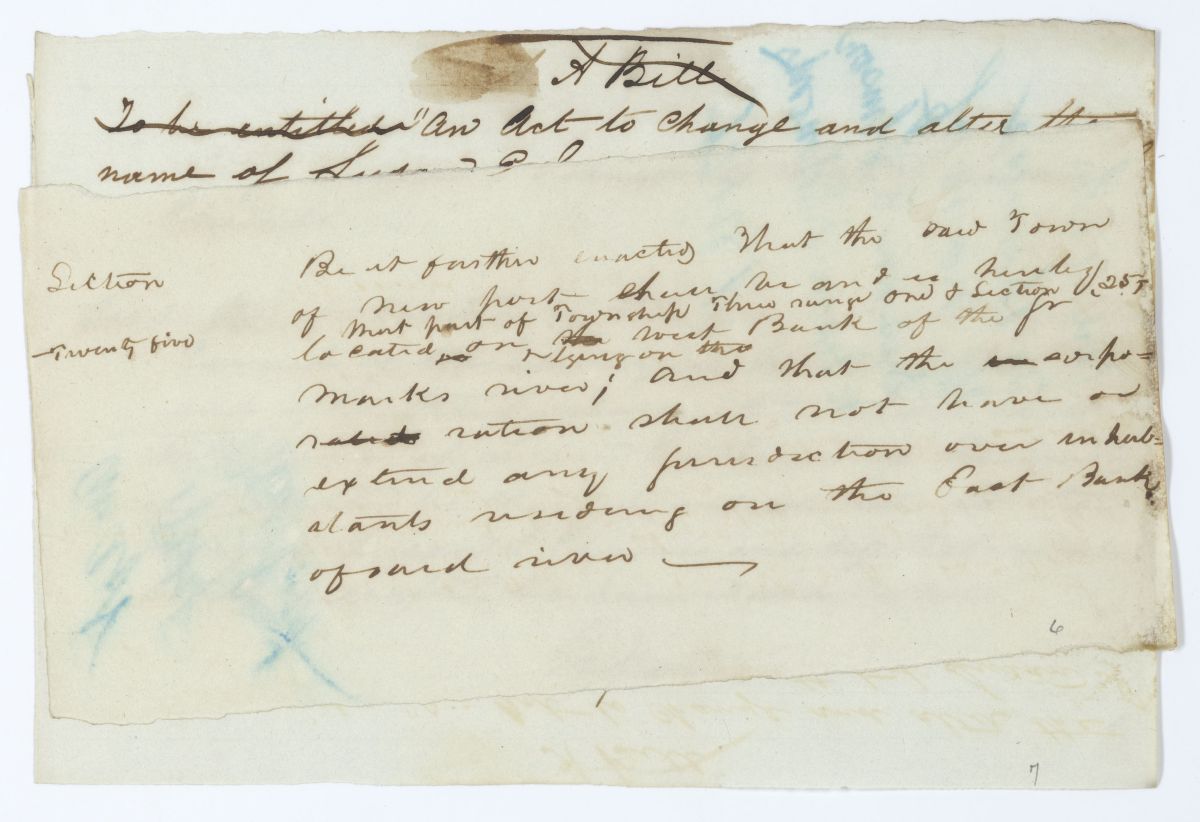 A Bill
To be entitled "An Act to change and alter the
name of
Section
Twenty five
Be it further enacted That the said Town
of new port shall be and is hereby
that part of Township Three range one & Section 25
located on the west Bank of the St
& lying on the
marks river; and that the corpo-
ration shall not have or
extend any jurisdiction over inhab-
itants residing on the East Bank
of said river
6
7